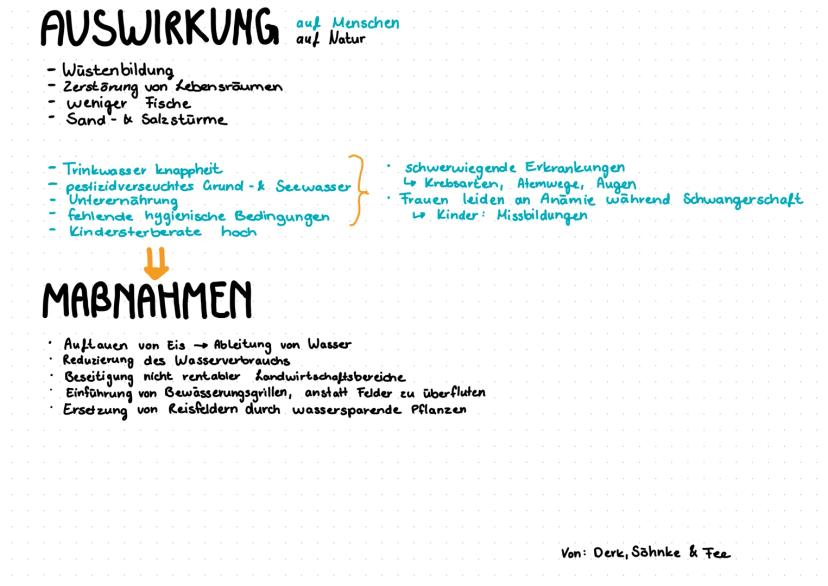 AUSWIRKUNG auf Menschen
auf Natur
- Wüstenbildung
- Zerstörung von Lebensräumen
- weniger Fische
- Sand- & Salzstürme
- Trinkwasser knappheit
- pestizidverseuchtes Grund- & Seewasser
- Unterernährung
- fehlende hygienische Bedingungen
- Kindersterberate hoch
· schwerwiegende Erkrankungen
↳ Krebsarten, Atemwege, Augen
· Frauen leiden an Anämie während Schwangerschaft
↳ Kinder: Missbildungen
MAßNAHMEN
· Auftauen von Eis → Ableitung von Wasser
· Reduzierung des Wasserverbrauchs
· Beseitigung nicht rentabler Landwirtschaftsbereiche
· Einführung von Bewässerungsrillen, anstatt Felder zu überfluten
· Ersetzung von Reisfeldern durch wassersparende Pflanzen
Von: Derk, Söhnke & Fee